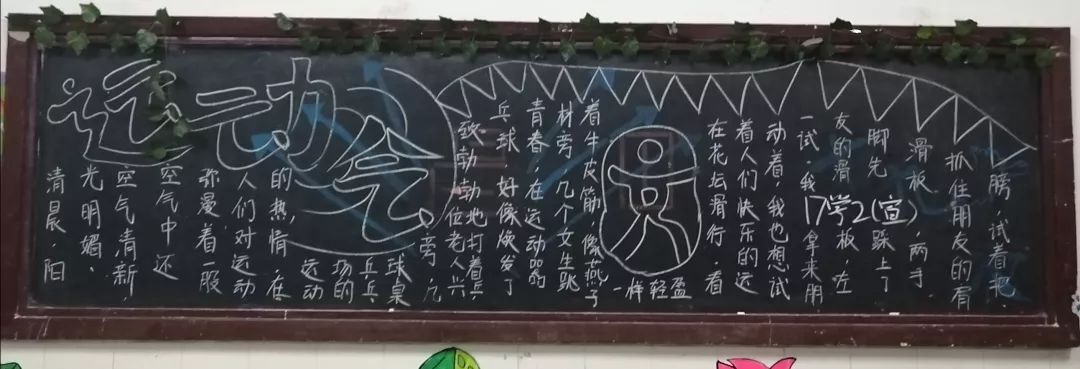 运动会
清晨，阳
光明媚，
空气清新，
空气中还
弥漫着一股
人们对运动
的热情，在
运动
场的
乒乓
球桌
旁，几
位老人兴
致勃勃地打着乒
乓球，好像焕发了
青春，在运动器
材旁，几个女生跳
着牛皮筋，像燕子
一样轻盈
在花坛滑行，看
着人们快乐的运
动着，我也想试
一试，我拿来朋
友的滑板，左
脚先跺上了
滑板，两手
抓住朋友的肩
膀，试着把
17学2(宣)